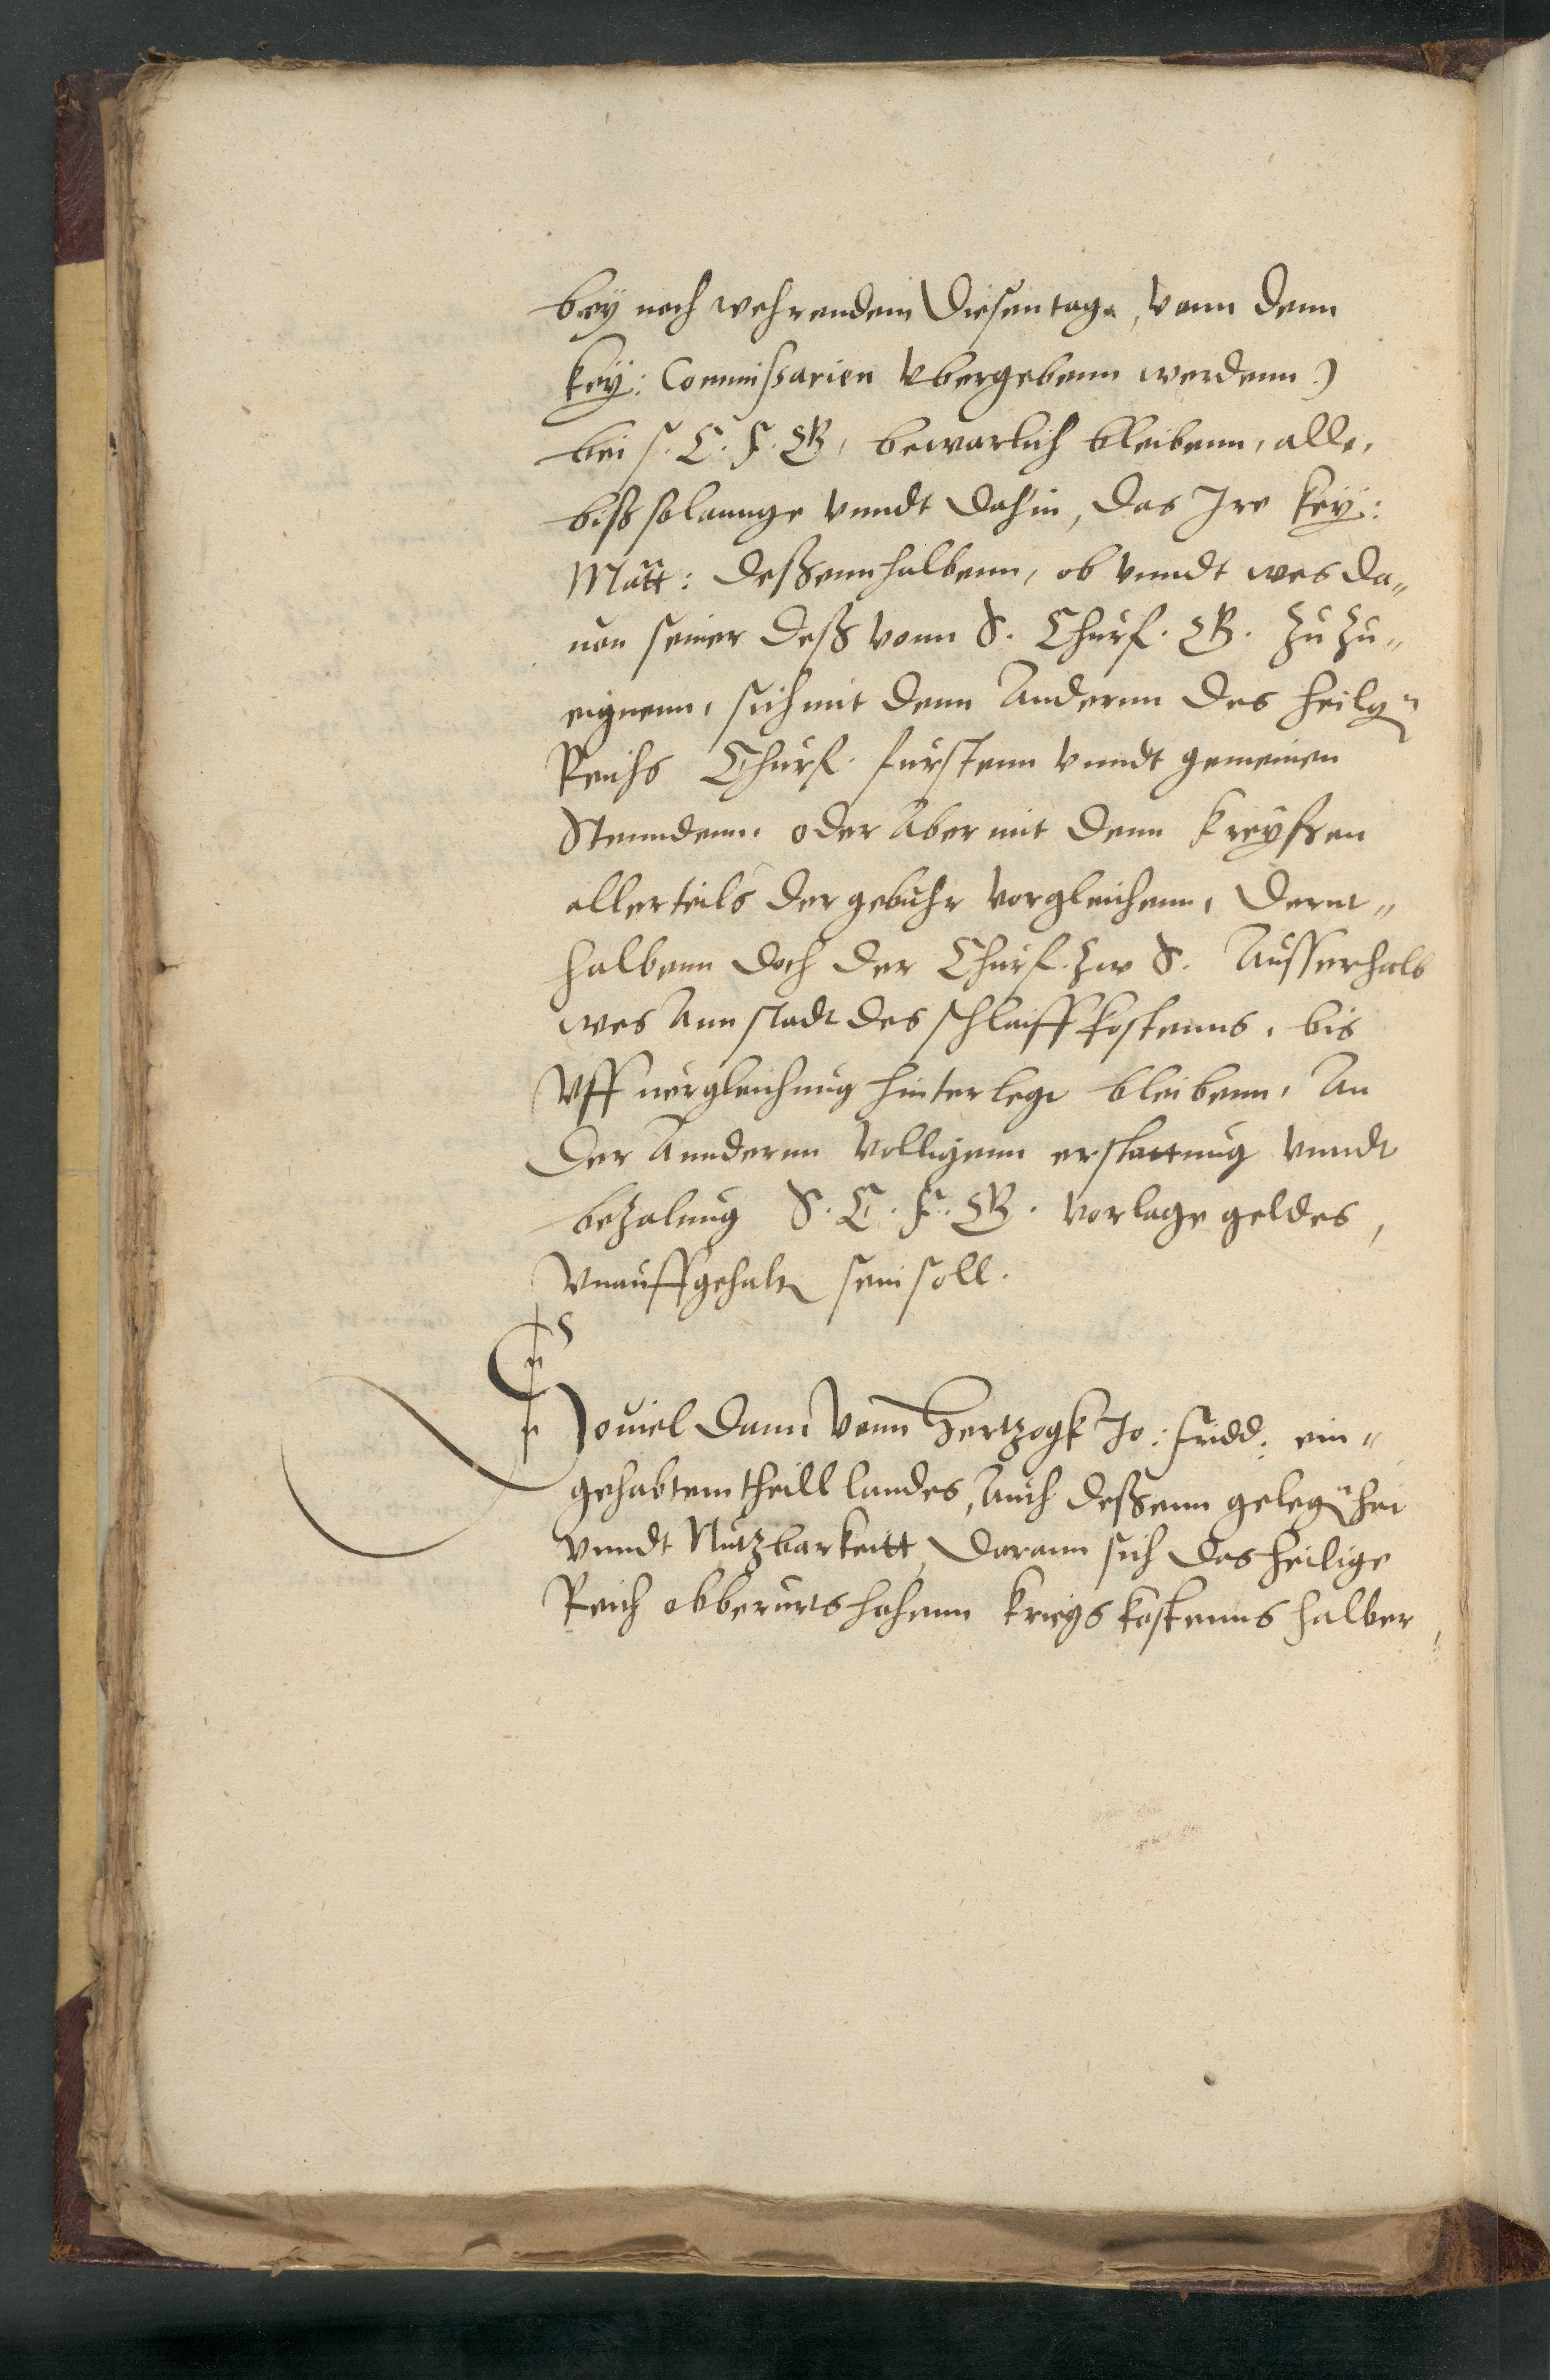 bey noch wehrendem diesen tage, vonn denn
Key: Commissarien vbergebenn werdenn)
bei s. C. F. G. bewarlich bleibenn, alle,
biß solannge vnndt dahin, das Ire Key:
Matt: deßennhalbenn, ob vnndt wes da„
uon seiner deß vonn S. Churf. G. zu zu„
eignenn, sich mit denn Andernn des heilgn
Reichs Churf. fürstenn vnndt gemeinen
Stenndenn, oder Aber mit denn Kreyßen
allerteils der gebuhr vorgleichenn, dernt„
halbenn doch der Churf. zw S. Ausserhalb
wes Ann stadt des schleiff kostenns, bis
Vff uergleichnug hinterlegt bleibenn, An
der Anndernn volligenn erstattung vnndt
bezalung S. C. F. G. vorlage geldes,
Vnauffgehaltn sein soll.
Souiel dann vonn Hertzogk Jo: Fridd: ein„
gehabtem theill landes, Auch deßenn gelegnheit
vnndt Nutzbarkeitt, darann sich das heilige
Reich obberurts hohenn kriegs kostenns halber,